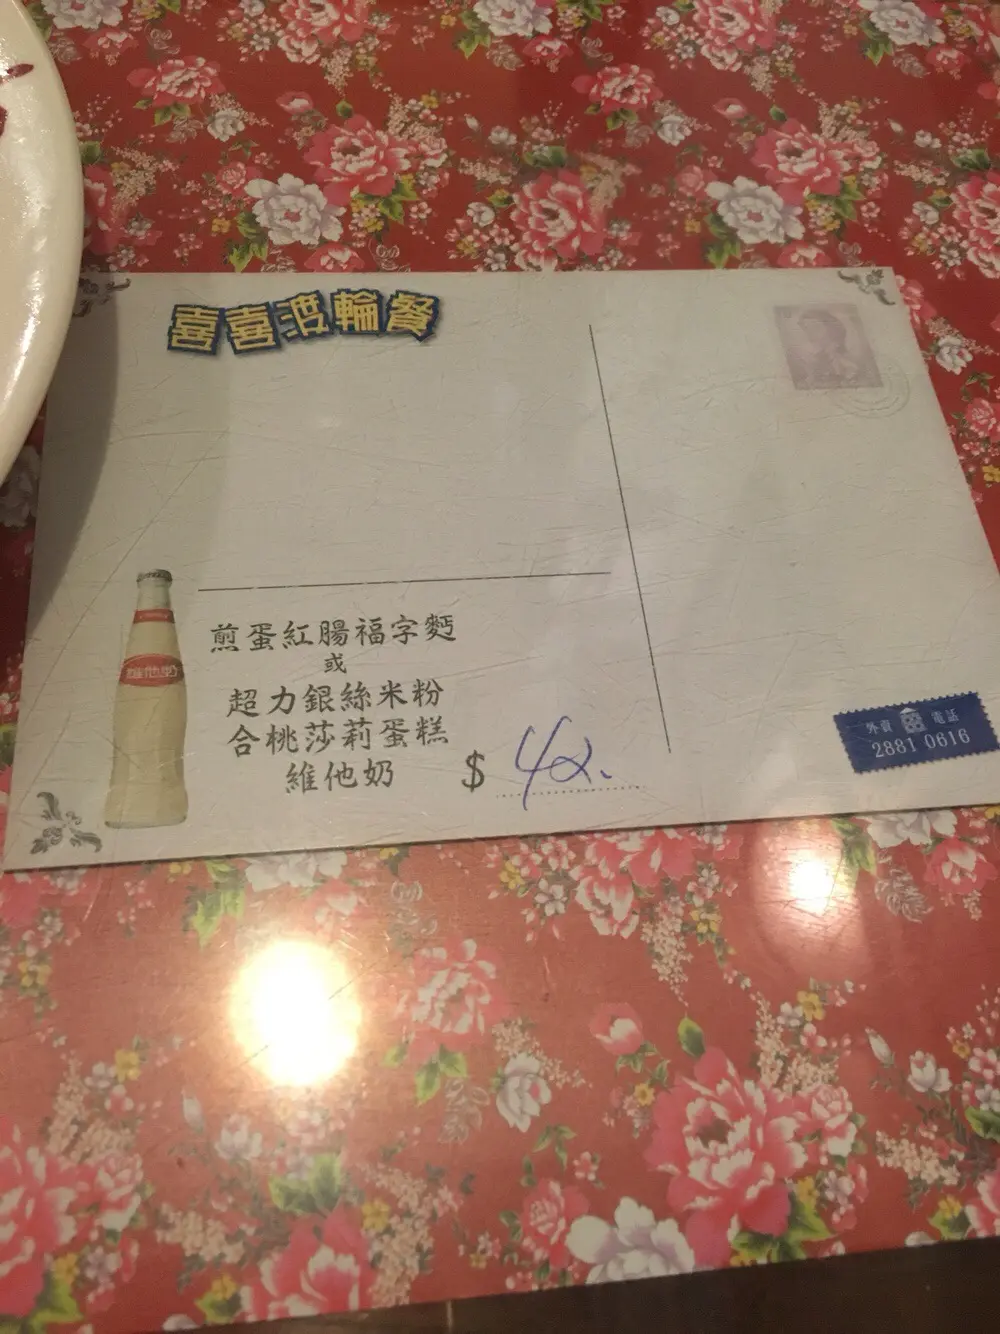 喜喜渡輪餐
維他奶
煎蛋紅腸福字麪
或
超力銀絲米粉
合桃莎莉蛋糕
維他奶
$ 42.
外賣 電話
2881 0616